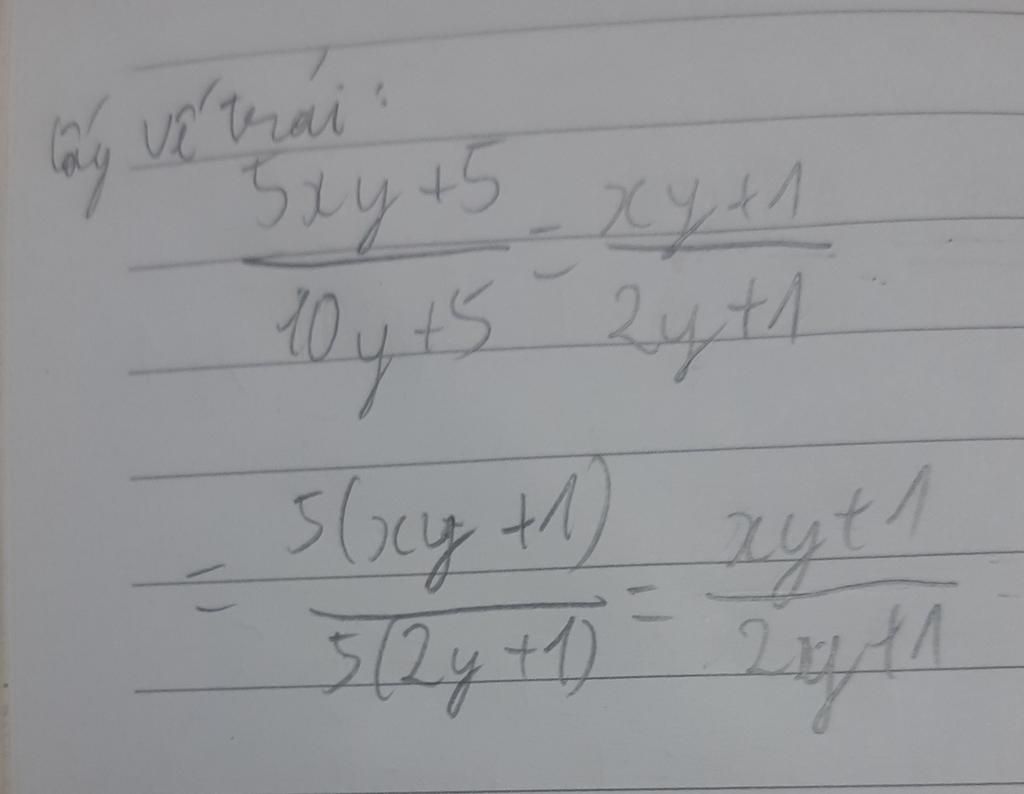 Lấy vế trái:
5xy+5 / 10y+5 = xy+1 / 2y+1
= 5(xy+1) / 5(2y+1) = xy+1 / 2y+1